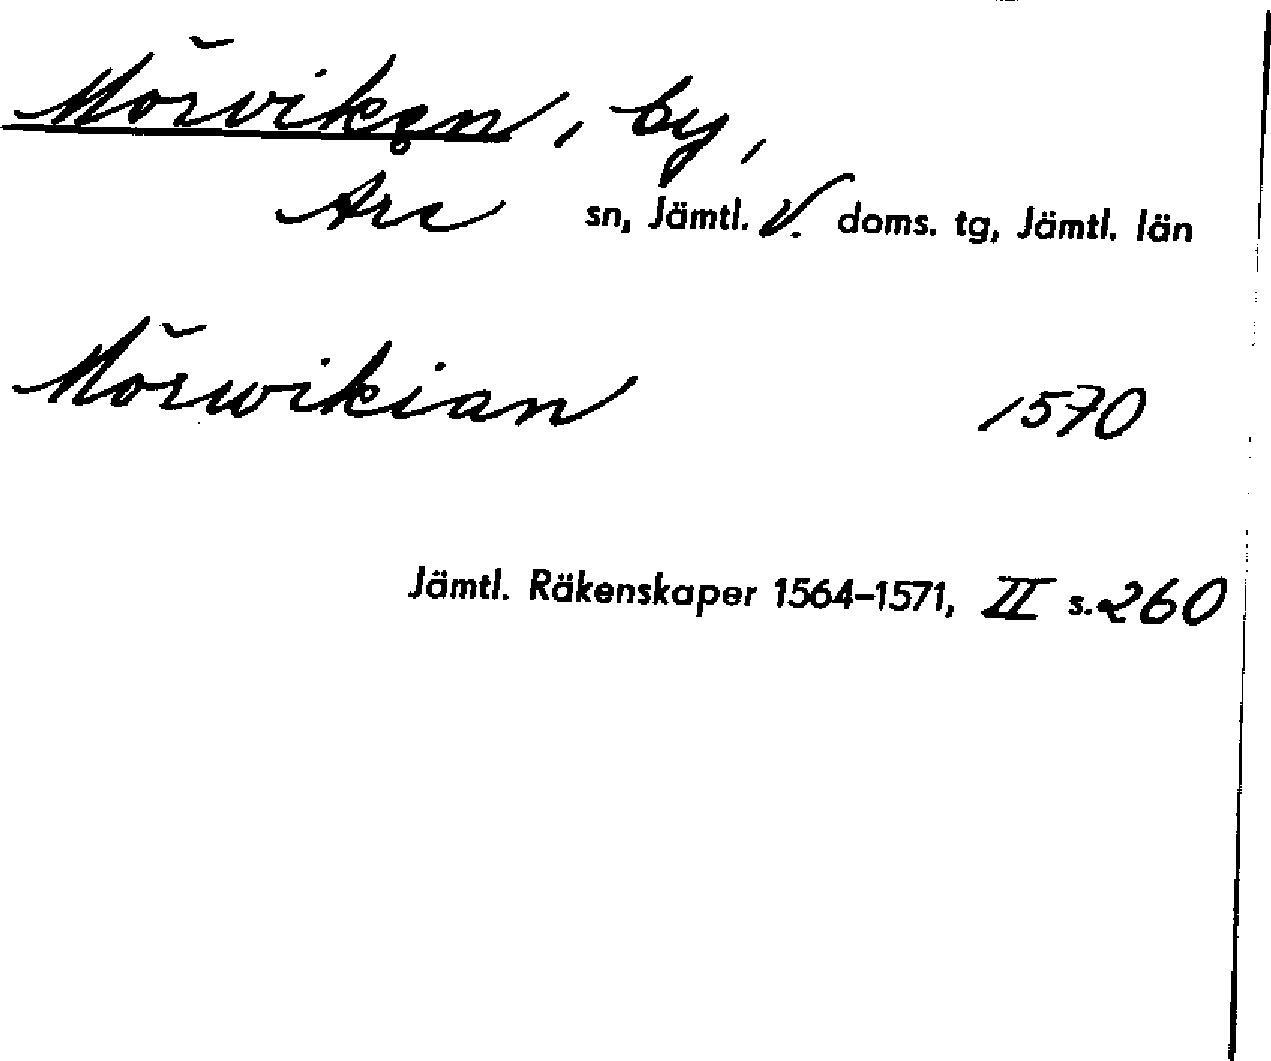 Mörviken, by,
Åre sn, Jämtl. V. doms. tg, Jämtl. län
Mörwikian 1570
Jämtl. Räkenskaper 1564-1571, II s. 260